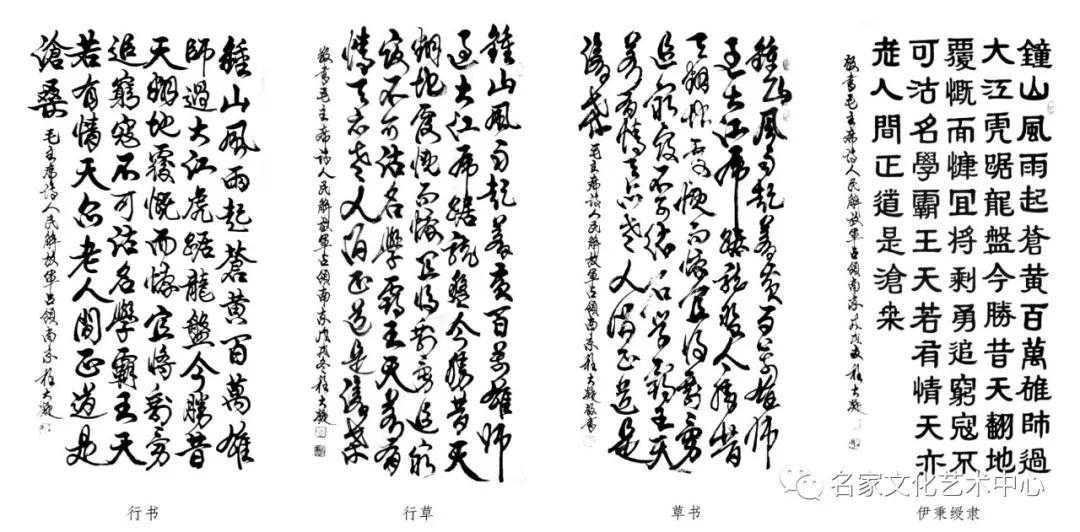 鍾山風雨起蒼黃百萬雄
師過大江虎踞龍盤今勝昔
天翻地覆慨而慷宜將剩勇
追窮寇不可沽名學霸王天
若有情天亦老人間正道是
滄桑 毛主席詩人民解放軍占領南京
行书
鍾山風雨起蒼黃百萬雄師
過大江虎踞龍盤今勝昔天
翻地覆慨而慷宜將剩勇追窮
寇不可沽名學霸王天若有
情天亦老人間正道是滄桑
敬書毛主席詩人民解放軍占領南京戊戌冬
行草
鍾山風雨起蒼黃百萬雄師
過大江虎踞龍盤今勝昔
天翻地覆慨而慷宜將剩勇
追窮寇不可沽名學霸王天
若有情天亦老人間正道是
滄桑 毛主席詩人民解放軍占領南京
草书
鐘山風雨起蒼黃百萬雄師過
大江虎踞龍盤今勝昔天翻地
覆慨而慷宜將剩勇追窮寇不
可沽名學霸王天若有情天亦
老人間正道是滄桒
敬書毛主席詩人民解放軍占領南京
伊秉绶隶
名家文化艺术中心